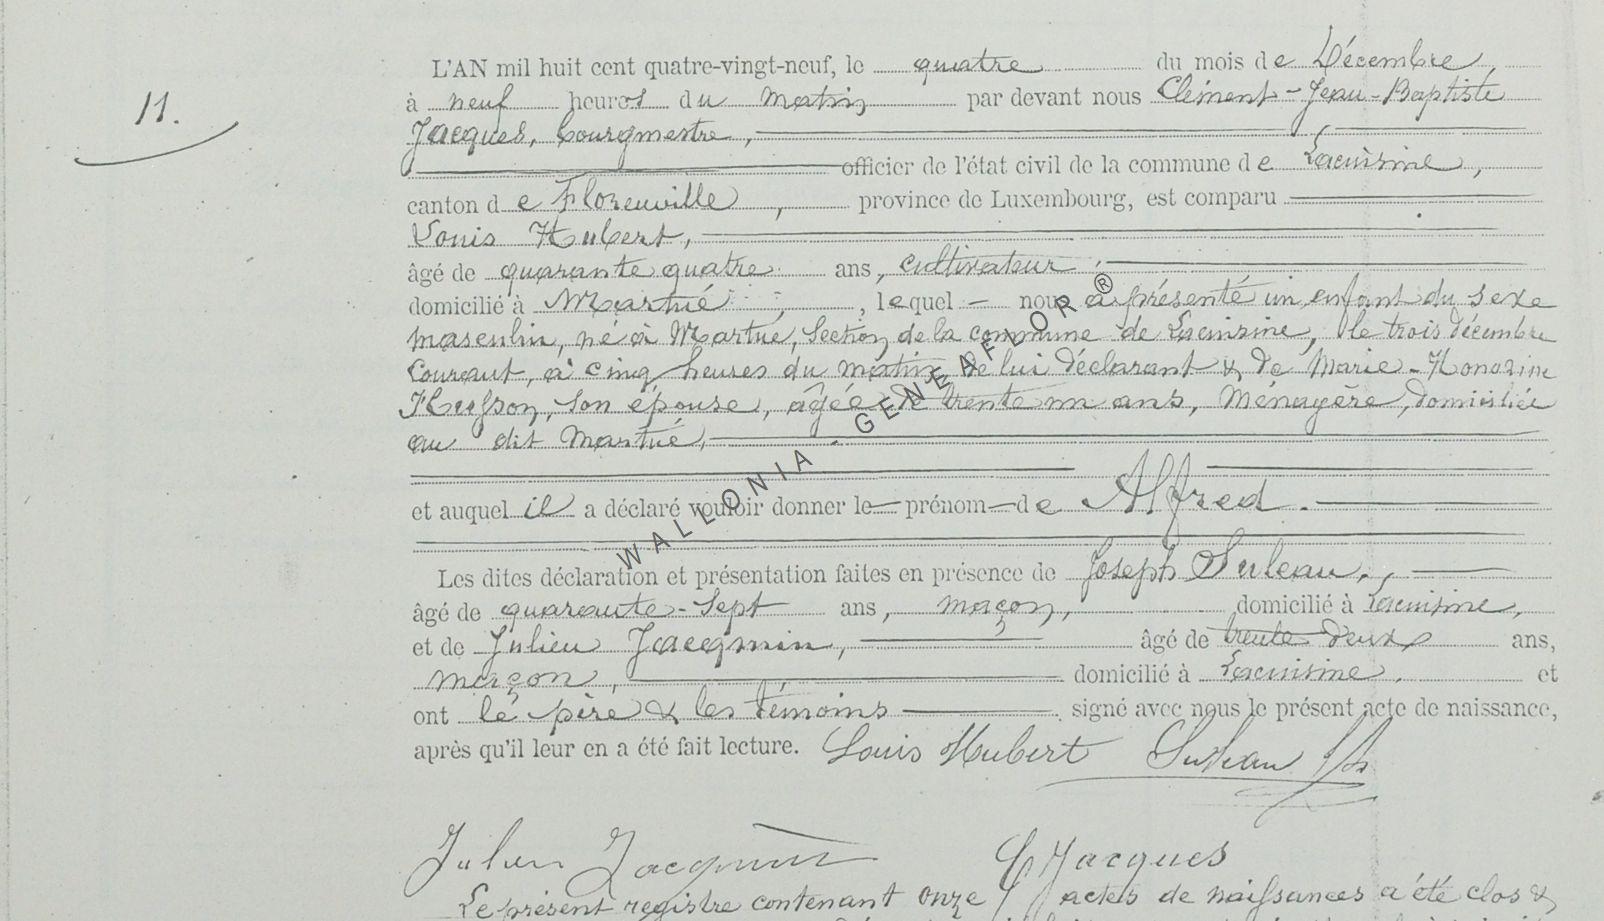 11.
L'AN mil huit cent quatre-vingt-neuf, le quatre du mois de Décembre,
à neuf heures du matin par devant nous Clément-Jean-Baptiste
Jacques, bourgmestre,
officier de l'état civil de la commune de Lacuisine,
canton de Florenville, province de Luxembourg, est comparu
Louis Hubert,
âgé de quarante quatre ans, cultivateur,
domicilié à Martué, lequel nous a présenté un enfant du sexe
masculin, né à Martué, Section de la commune de Lacuisine, le trois décembre
Courant, à cinq heures du matin de lui déclarant & de Marie-Honorine
Husson, son épouse, âgée de trente un ans, Ménagère, domiciliée
au dit Martué,
et auquel il a déclaré vouloir donner le prénom de Alfred.
Les dites déclaration et présentation faites en présence de Joseph Suleau,
âgé de quarante-sept ans, maçon, domicilié à Lacuisine,
et de Julien Jacqmin, âgé de trente-deux ans,
maçon, domicilié à Lacuisine. et
ont le père & les témoins signé avec nous le présent acte de naissance,
après qu'il leur en a été fait lecture. Louis Hubert Suleau
Julien Jacqmin Jacques
Le présent registre contenant onze actes de naissances a été clos &
WALLONIA - GENEAFLOR ®